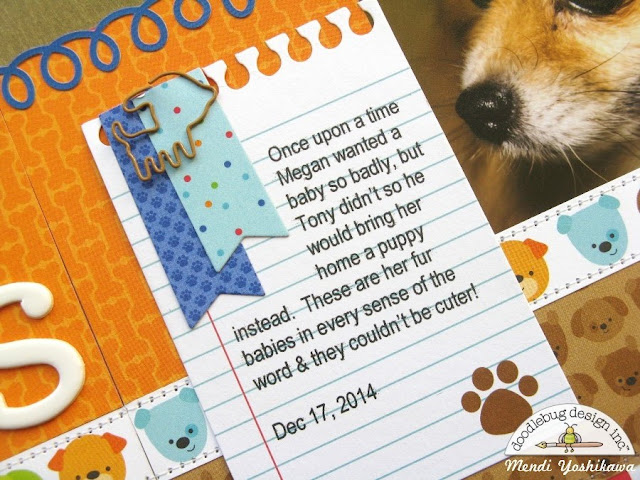 Once upon a time
Megan wanted a
baby so badly, but
Tony didn't so he
would bring her
home a puppy
instead. These are her fur
babies in every sense of the
word & they couldn't be cuter!
Dec 17, 2014
S
doodlebug design inc™
Mendi Yoshikawa